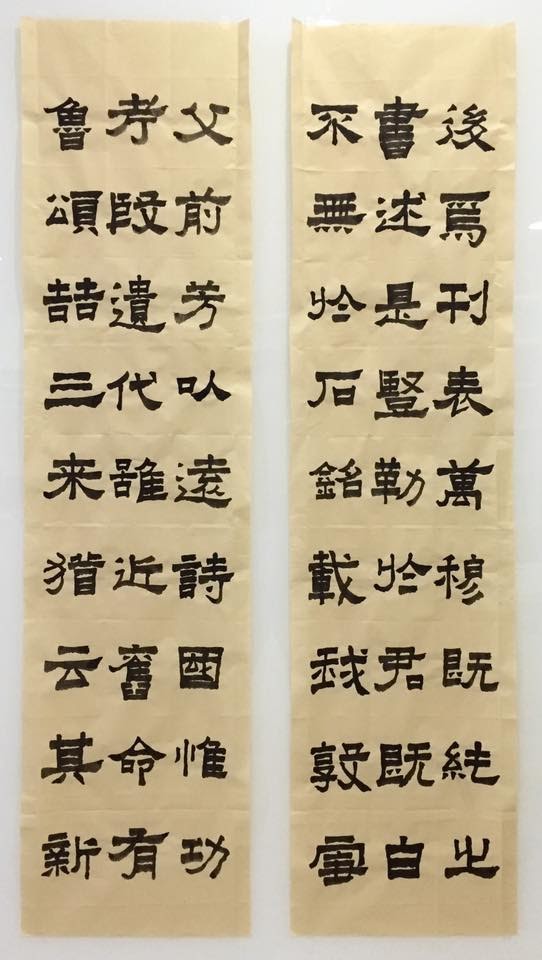 魯考父
頌殷前
喆遺芳
三代以
来雖遠
猶近詩
云舊國
其命惟
新有功
不書後
無述焉
於是刊
石豎表
銘勒萬
載於穆
我君既
敦既純
雪白之